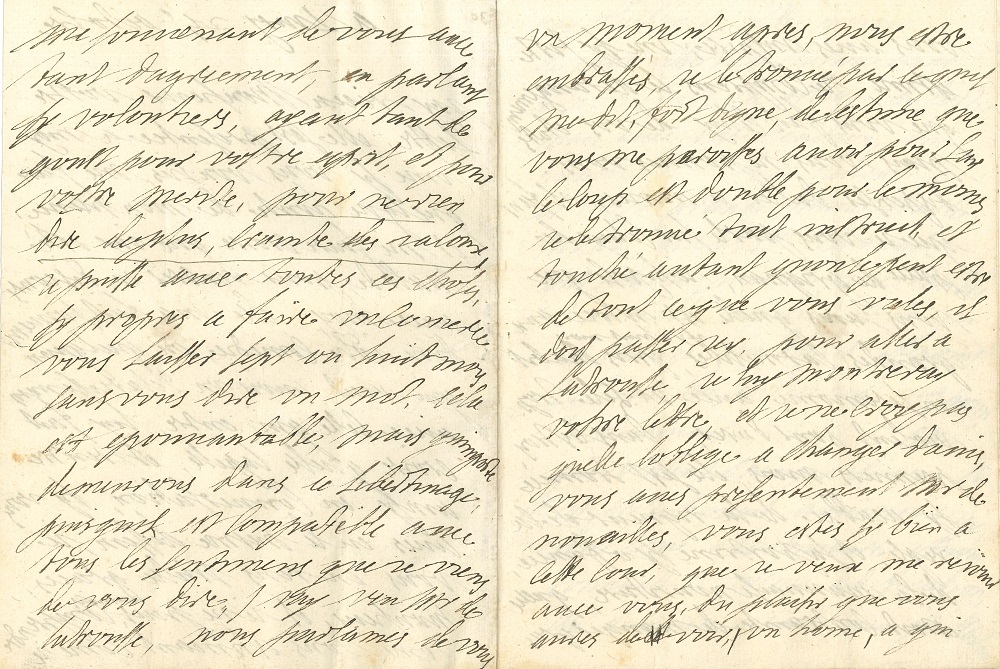 me souvenant de vous avec
tant dagreement en parlant
sy volontiers, ayant tant de
goust pour vostre esprit, et pour
vostre merite, pour ne rien
dire de plus, crainte des jaloux,
je puisse avec toutes ces choses,
sy propres a faire un comerce
vous laisser sept ou huit mois
sans vous dire un mot. cela
est epouvantable, mais quimporte
demeurons dans ce libertinage,
puisquil est compatible avec
tous les sentimens que je viens
de vous dire, j'ay veu Mr de
latrousse, nous parlames de vous
un moment apres, nous estre
embrasses, je le trouvé par ce quil
me dit, fort digne, de lestime que
vous me paroisses avoir pour luy
le coup est double pour le moins
je le trouvé tout instruit, et
touché autant quon le peut estre
de tout ce que vous vales, il
doit passer icy, pour aller a
latrousse, je luy montreray
vostre lettre, et je ne croy pas
quelle loblige a changer davis,
vous aves presentement Mr de
nouailles, vous estes sy bien a
cette cour, que je veux me rejouir
avec vous, du plaisir que vous
aures de voir, un home, a qui